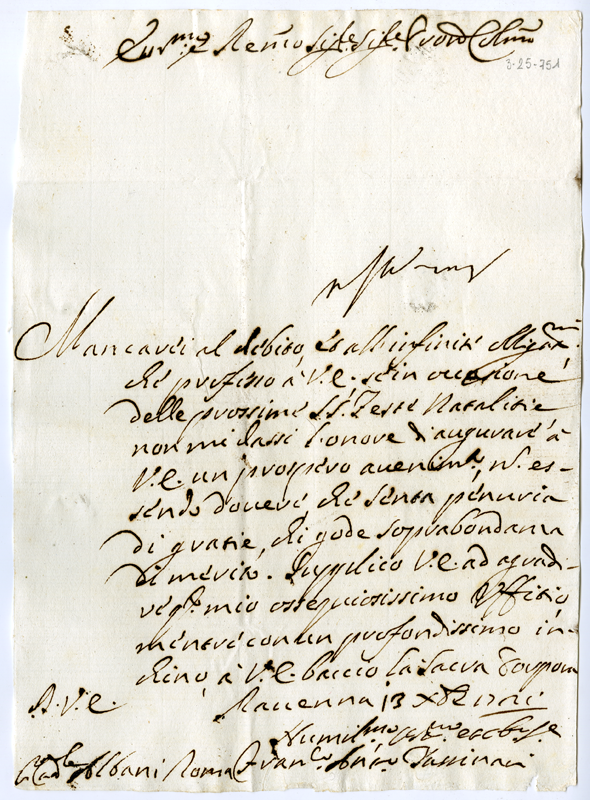 Em.mo e Rev.mo Sig.re Sig.re Prõn Col.mo
3-25-751
Mancarei al debito, et all'infinite obligaz.ni
che professo à V.E. se in occasione
delle prossime S.S. Feste Natalitie
non mi dassi l'onore di augurare à
V.E. un prospero avenim.to, non es-
sendo dovere, che senta penuria
di gratie, chi gode soprabondanza
di merito. Supplico V.E. ad agradi-
re q.to mio ossequiosissimo Uffitio,
mentre con un profondissimo in-
chino, à V.E. baccio la sacra Porpora
D. V.E. Ravenna 13 Xbre
Humil.mo
Albani Roma Fran.co